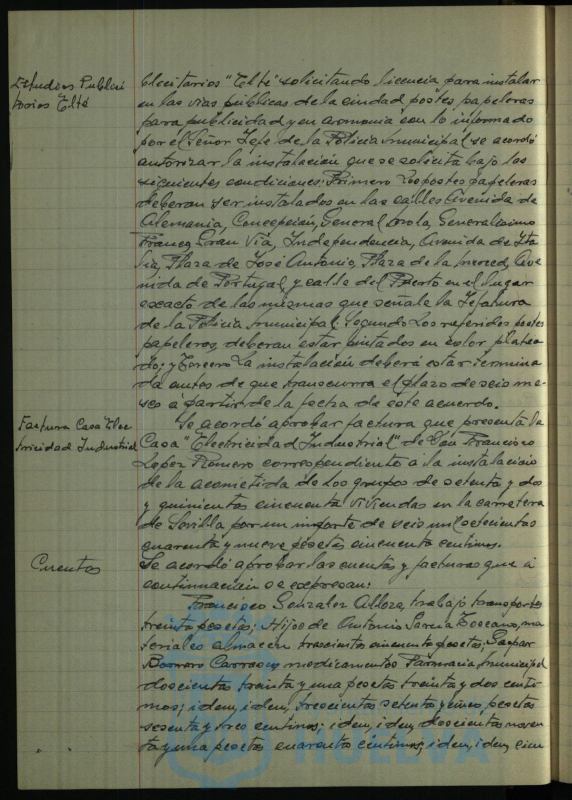 Estudios Publici
tarios Elté
blicitarios "Elté" solicitando licencia para instalar
en las vias públicas de la ciudad postes papeleras
para publicidad y en armonia con lo informado
por el Señor Jefe de la Policia Municipal se acordó
autorizar la instalación que se solicita bajo las
siguientes condiciones: Primero Los postes papeleras
deberan ser instalados en las calles Avenida de
Alemania, Concepción, General Mola, Generalisimo
Franco, Gran Via, Independencia, Avenida de Ita
lia, Plaza de José Antonio, Plaza de la Merced, Ave
nida de Portugal y calle del Puerto en el lugar
exacto de las mismas que señale la Jefatura
de la Policia Municipal; Segundo Los referidos postes
papeleros, deberan estar pintados en color platea
do; y Tercero La instalación deberá estar termina
da antes de que transcurra el plazo de seis me-
ses a partir de la fecha de este acuerdo.
Factura Casa Elec
tricidad Industrial
Se acordó aprobar factura que presenta la
Casa "Electricidad Industrial" de Don Francisco
Lopez Romero correspondiente a la instalación
de la acometida de los grupos de setenta y dos
y quinientas cincuenta viviendas en la carretera
de Sevilla por un importe de seis mil setecientas
cuarenta y nueve pesetas cincuenta centimos.
Cuentas
Se acordó aprobar las cuentas y facturas que a
continuación se expresan:
Francisco Gonzalez trabajo transportes
treinta pesetas; Hijos de Antonio Garcia Toscano, ma
teriales almacén trescientas cincuenta pesetas; Gaspar
Carrasco medicamentos Farmacia Municipal
doscientas treinta y una pesetas treinta y dos centi
mos; idem, idem, trescientas setenta y cinco pesetas
sesenta y tres centimos; idem, idem, doscientas noven
ta y una pesetas cuarenta centimos; idem, idem, cien
HUELVA